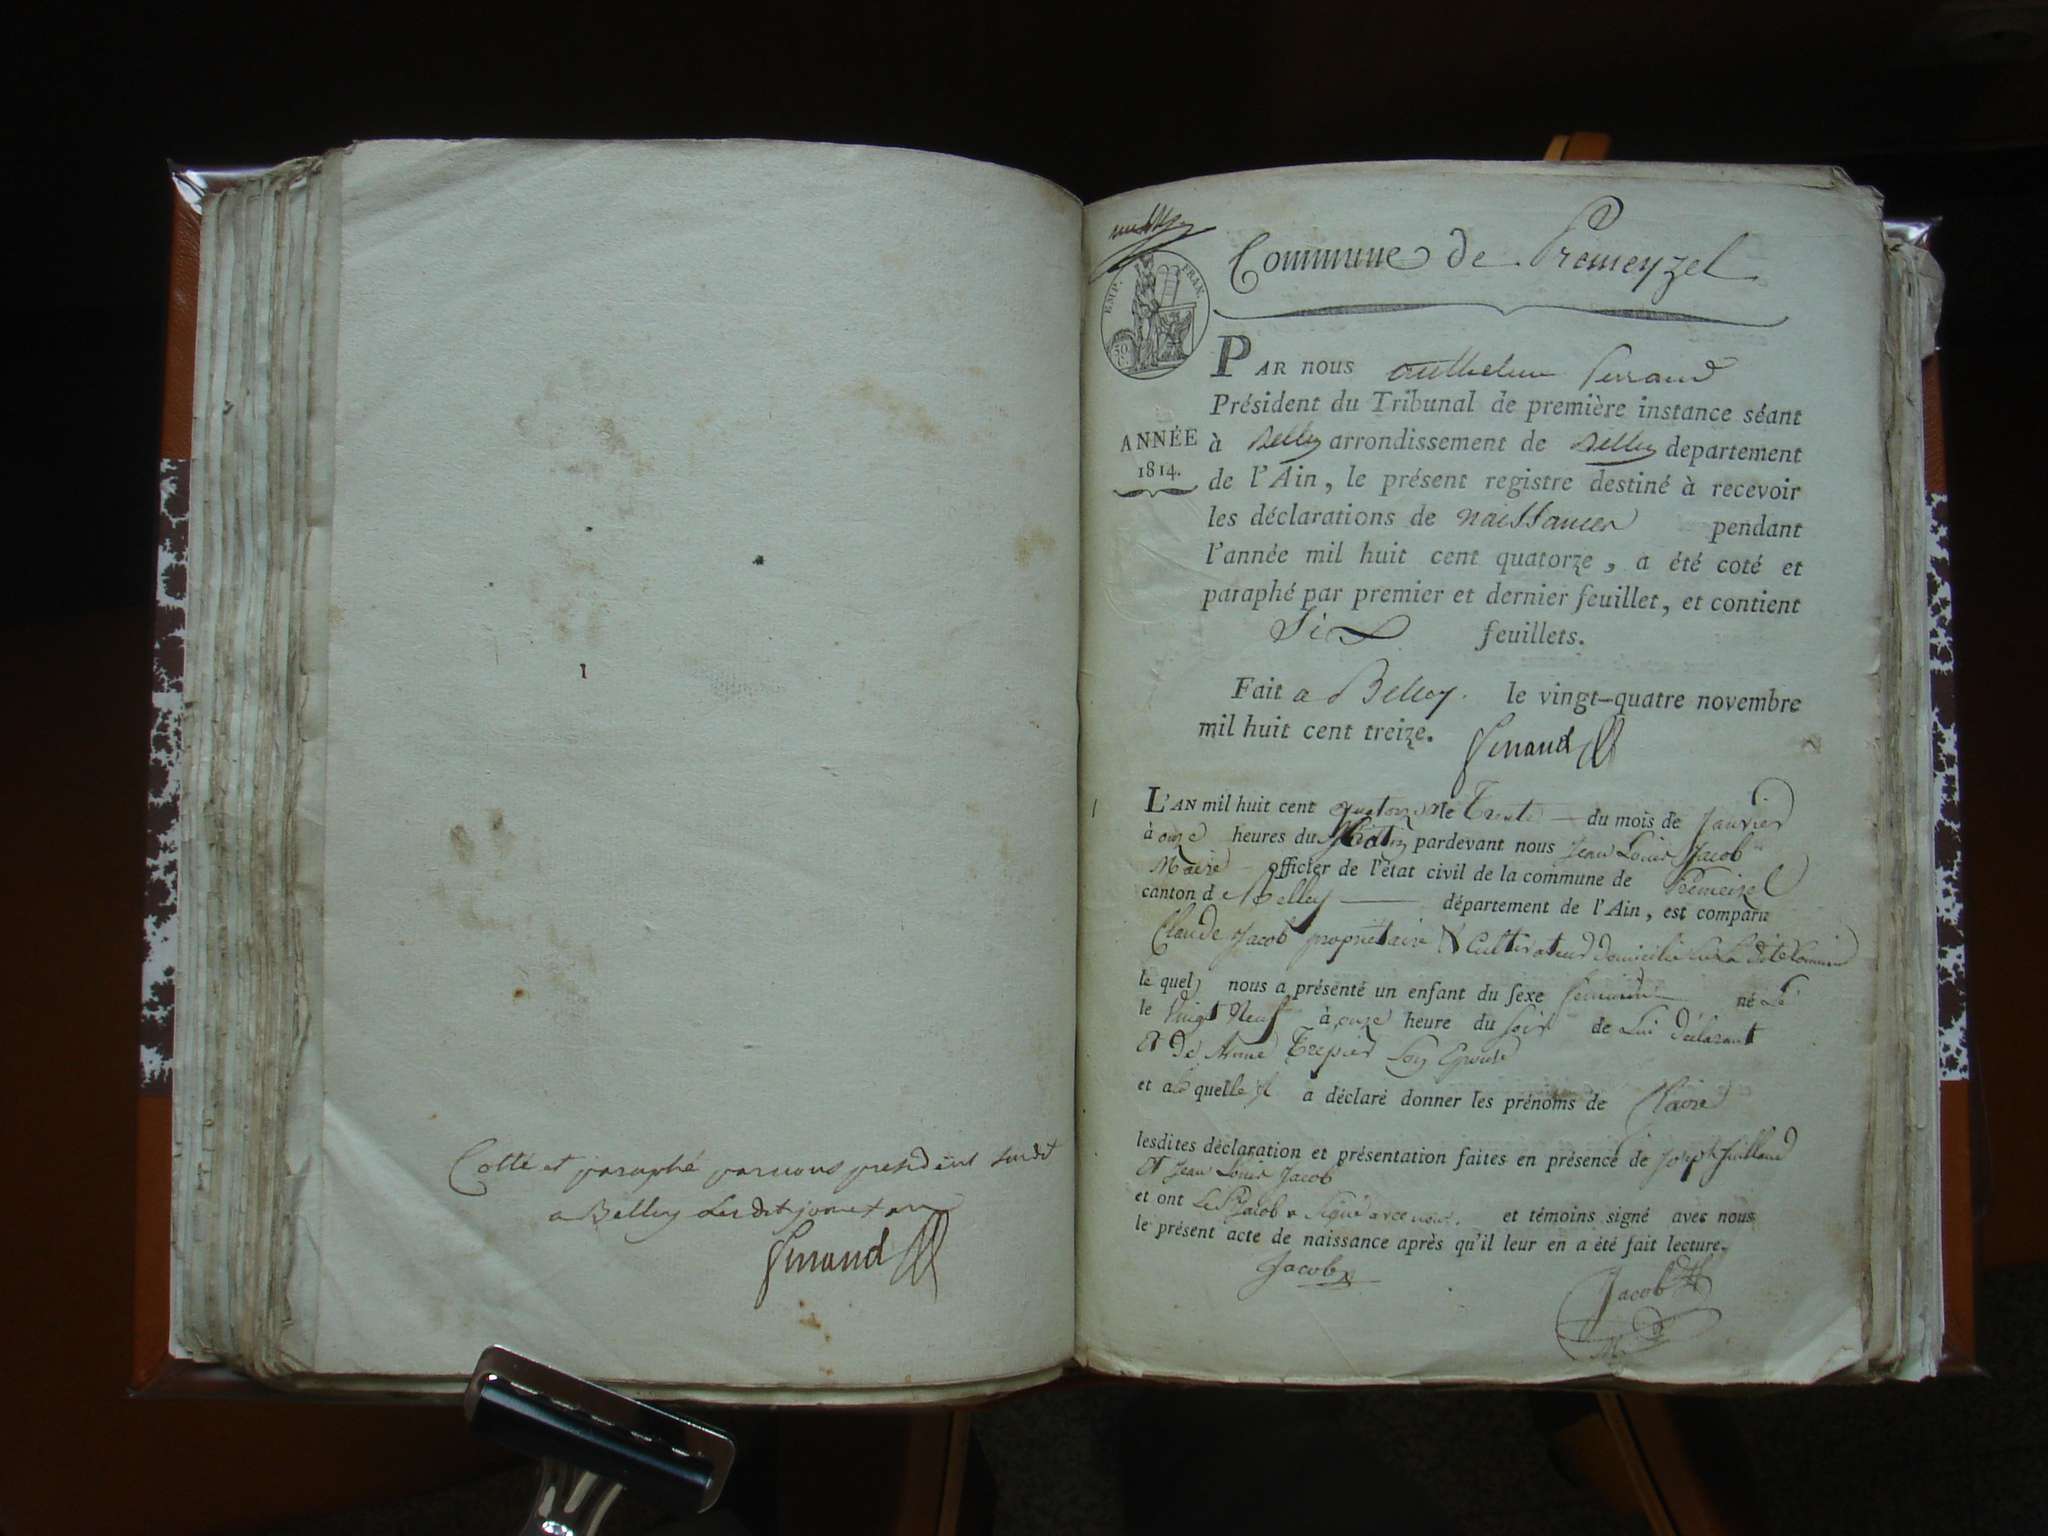 Cotté et paraphé par nous president susdit
a Belley lesdits jour et an
Ferrand
Commune de Premeyzel
EMP. FRAN.
50
PAR nous Anthelme Ferrand
Président du Tribunal de première instance séant
ANNÉE
1814.
à Belley arrondissement de Belley departement
de l'Ain, le présent registre destiné à recevoir
les déclarations de naissances pendant
l'année mil huit cent quatorze, a été coté et
paraphé par premier et dernier feuillet, et contient
Six feuillets.
Fait a Belley. le vingt-quatre novembre
mil huit cent treize. Ferrand
L'AN mil huit cent quatorze le Trente du mois de Janvier
à onze heures du Matin pardevant nous Jean Louis Jacob
Maire officier de l'état civil de la commune de Premeizel
canton de Belley département de l'Ain, est comparu
Claude Jacob propriétaire & Cultivateur domicilié
le quel nous a présenté un enfant du sexe feminin né
le Vingt Neuf à onze heure du soir de Lui déclarant
Et de Anne Trepier Son Epouse
et a quelle il a déclaré donner les prénoms de Claire
lesdites déclaration et présentation faites en présence de Joseph Juilland
Et Jean Louis Jacob
et ont Jacob Signé avec nous. et témoins signé avec nous
le présent acte de naissance après qu'il leur en a été fait lecture.
Jacob Jacob